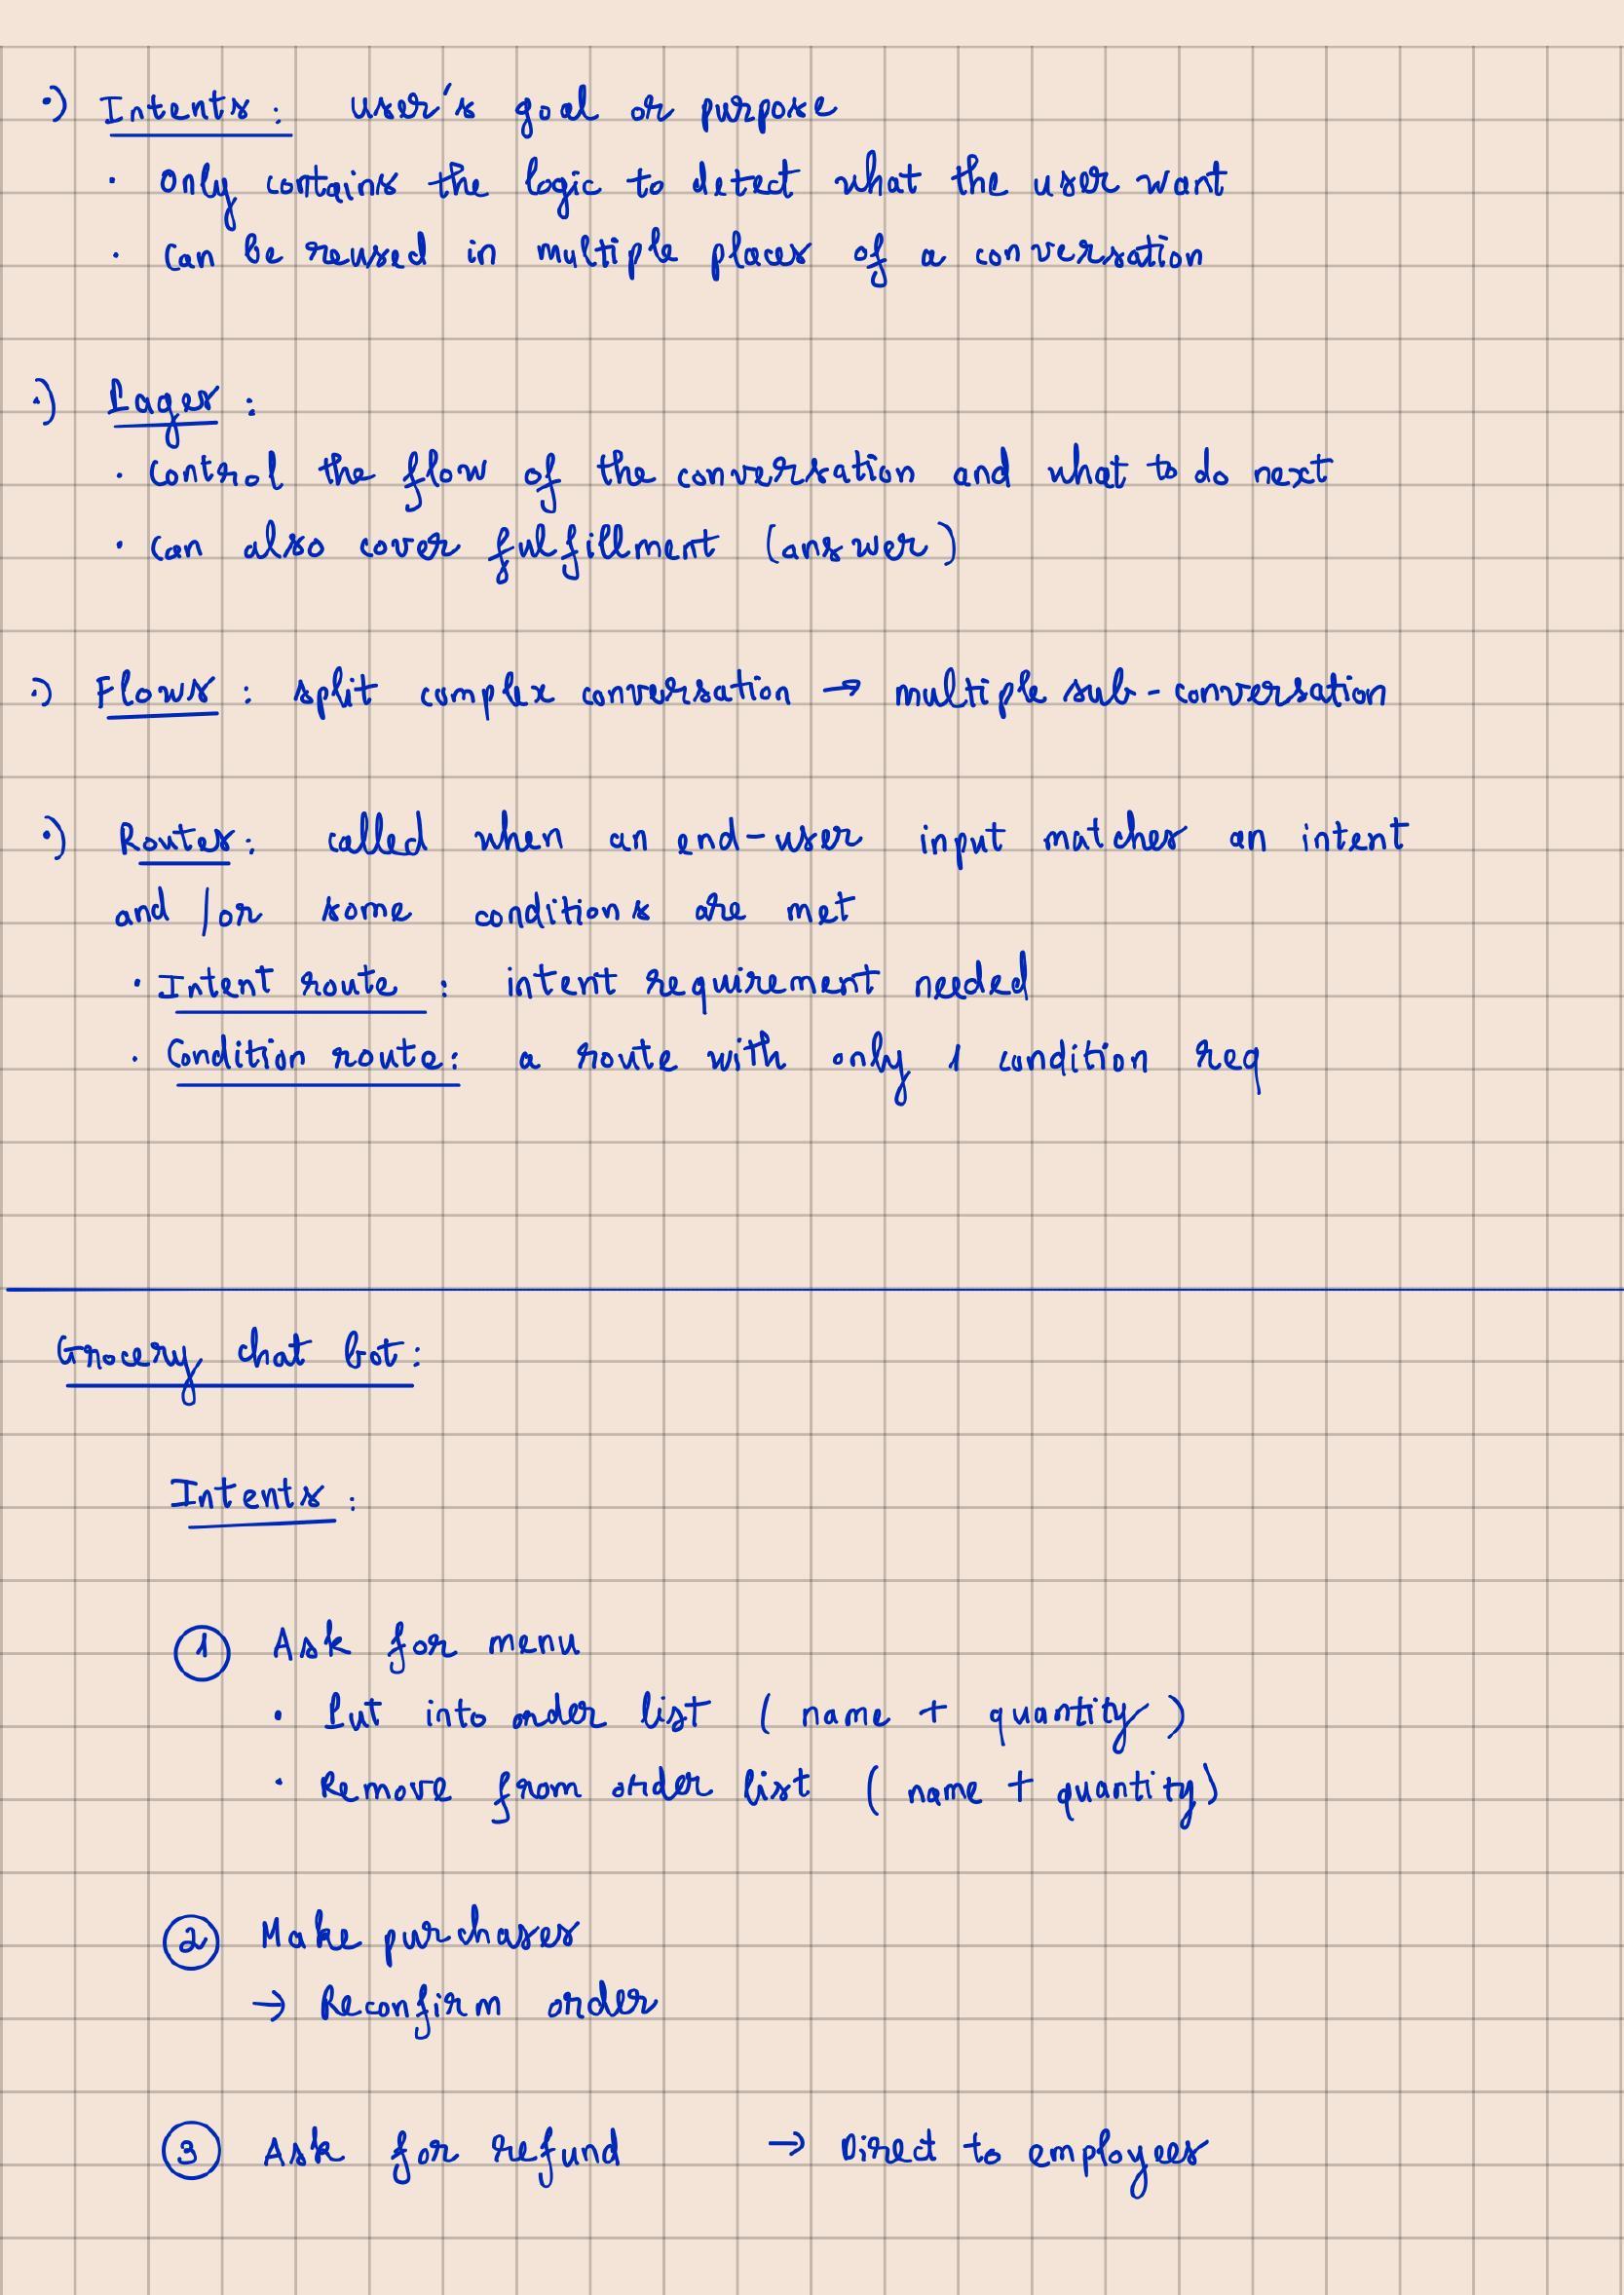 ·) Intents : user's goal or purpose
· Only contains the logic to detect what the user want
· Can be reused in multiple places of a conversation
·) Pages :
· Control the flow of the conversation and what to do next
· Can also cover fulfillment (answer)
·) Flows : split complex conversation → multiple sub-conversation
·) Routes : called when an end-user input matches an intent
and /or some conditions are met
· Intent route : intent requirement needed
· Condition route : a route with only 1 condition req
Grocery chat bot :
Intents :
① Ask for menu
· Put into order list ( name + quantity )
· Remove from order list ( name + quantity)
② Make purchases
→ Reconfirm order
③ Ask for refund → Direct to employees